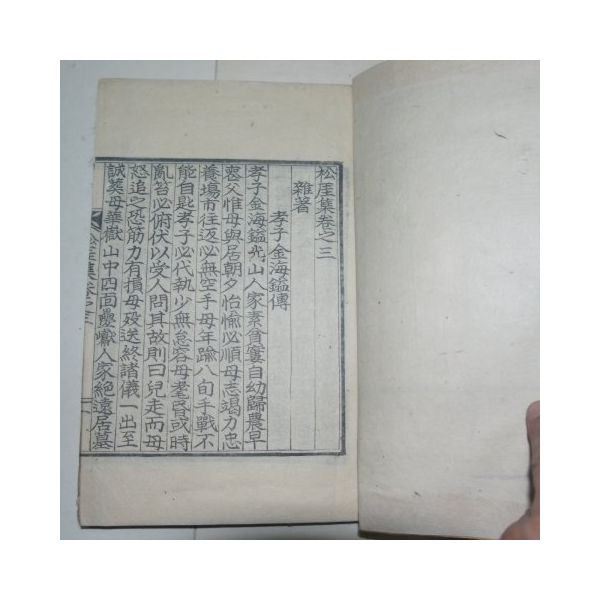 松厓集卷之三
雜著
孝子金海鎰傳
孝子金海鎰光山人家素貧窶自幼歸農早
喪父惟母與居朝夕怡愉必順母志竭力忠
養塲市往返必無空手母年踰八旬手戰不
能自匙孝子必代執少無怠容母耄昏或時
亂笞必俯伏以受人問其故則曰兒走而母
怒追之恐筋力有損母歿送終諸儀一出至
誠葬母華嶽山中四面疊巘人家絶遠居墓